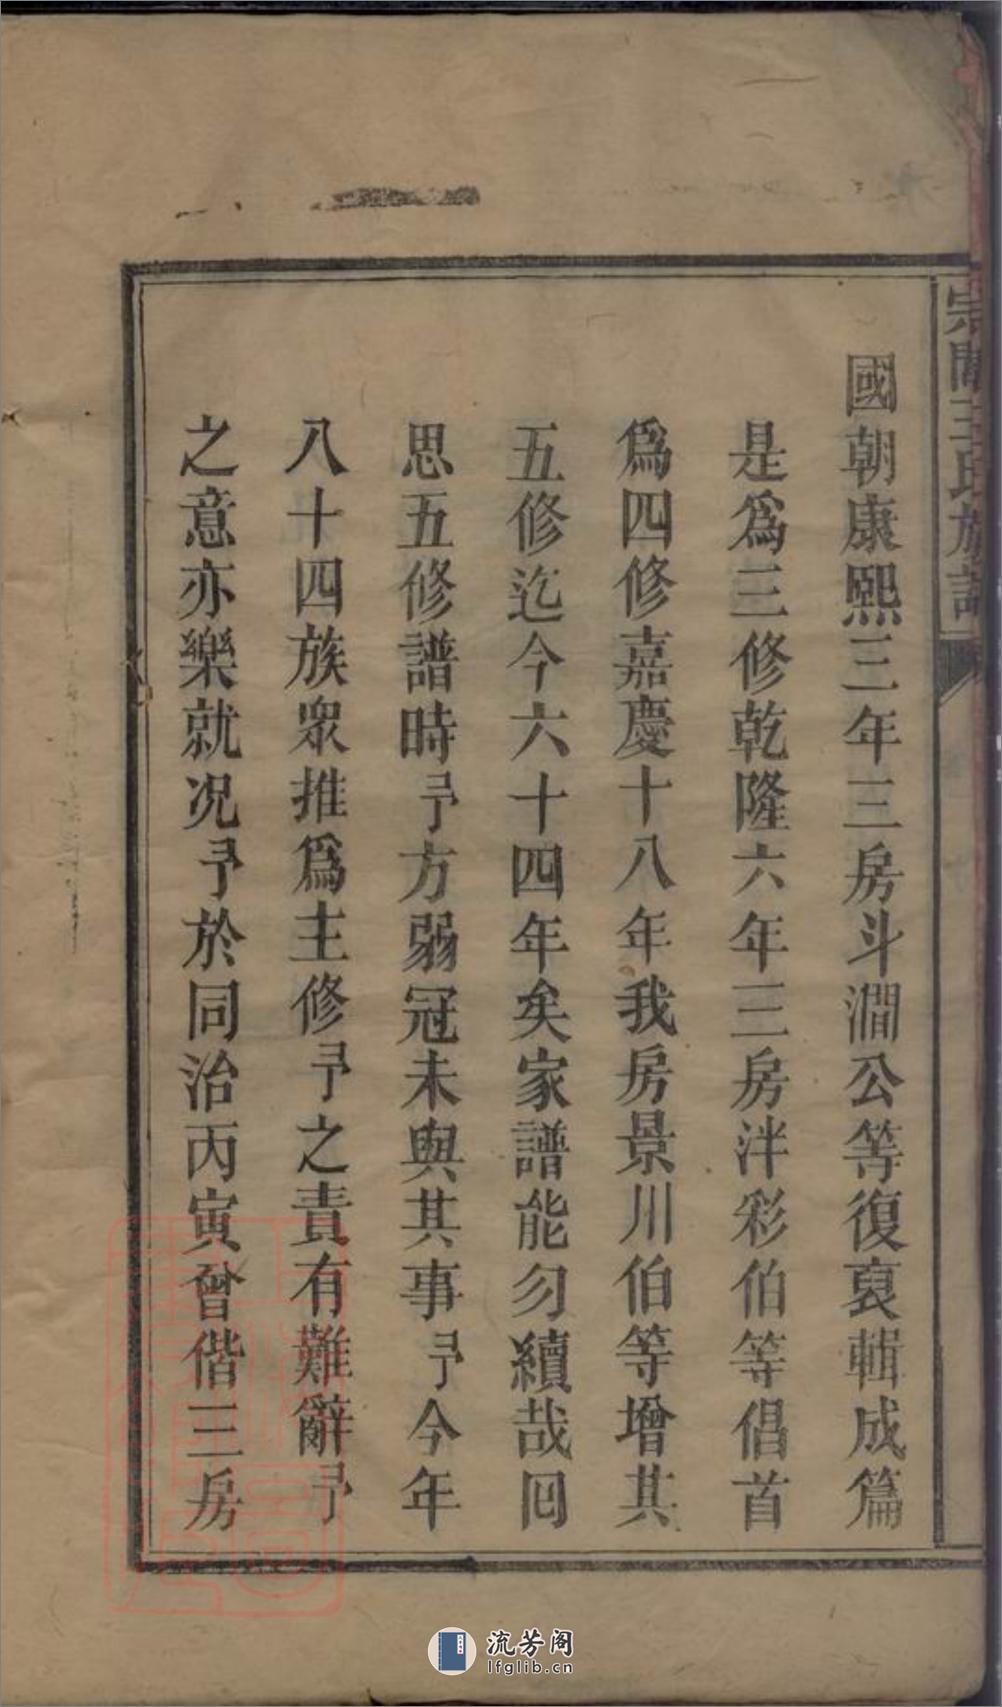 國朝康熙三年三房斗澗公等復裒輯成篇
是爲三修乾隆六年三房泮彩伯等倡首
爲四修嘉慶十八年我房景川伯等增其
五修迄今六十四年矣家譜能勿續哉囘
思五修譜時予方弱冠未與其事予今年
八十四族衆推爲主修予之責有難辭予
之意亦樂就况予於同治丙寅曾偕三房
王氏族譜
流芳阁
lfglib.cn